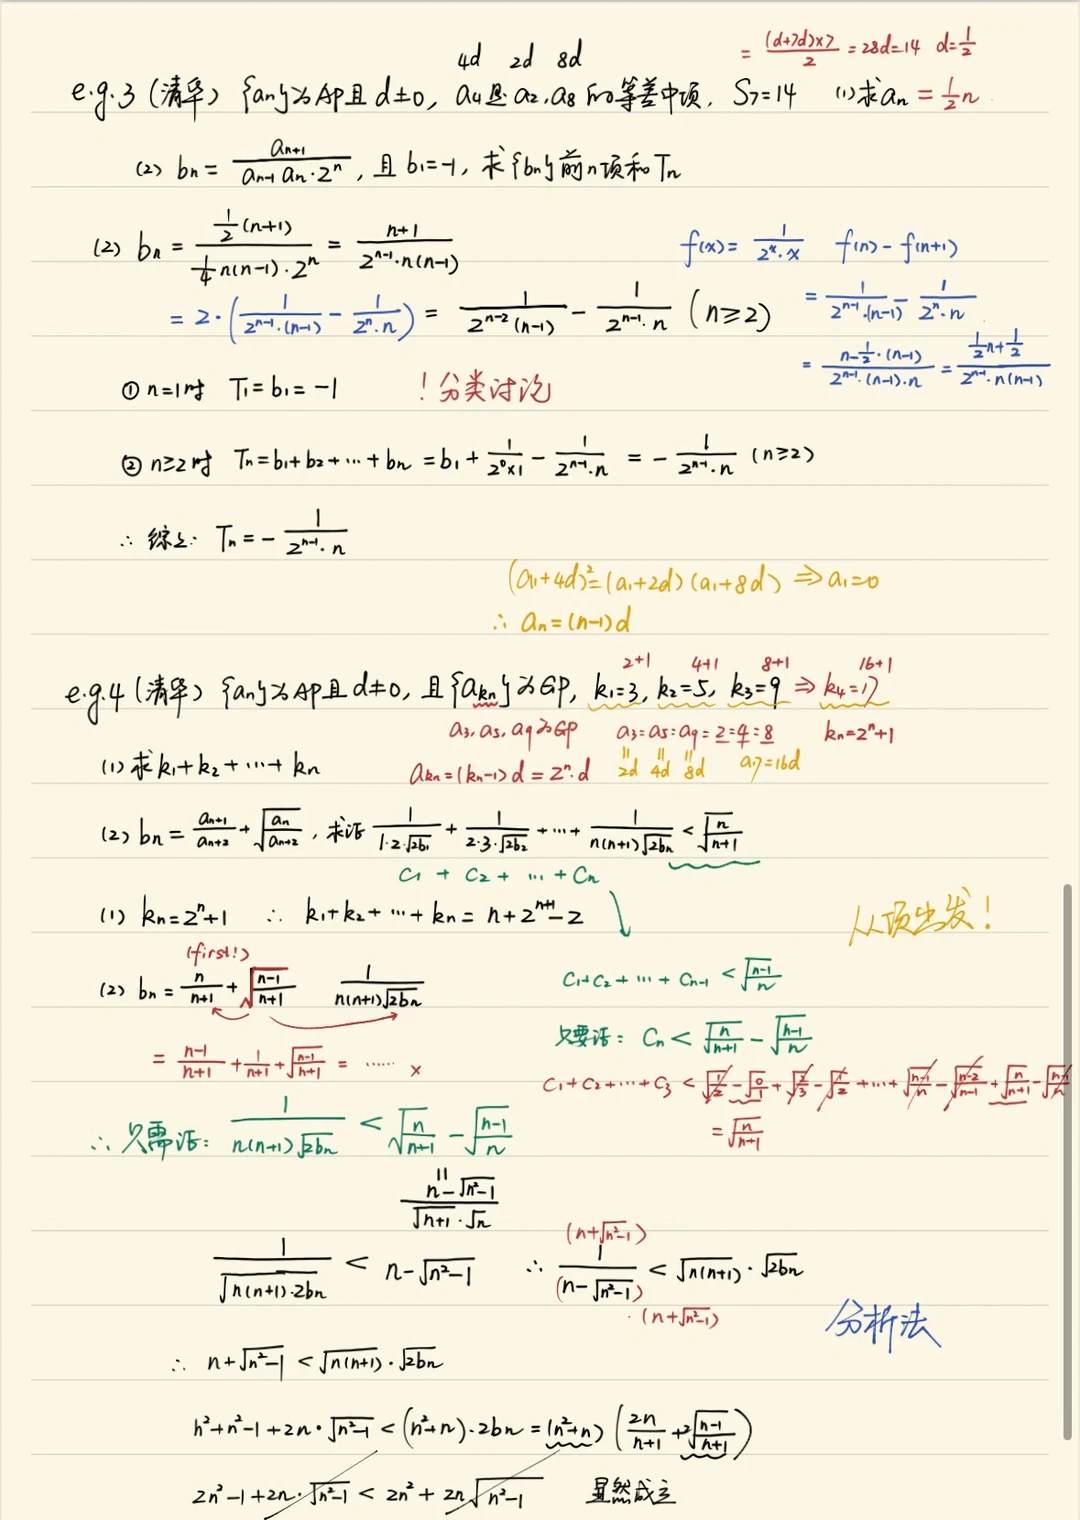 4d 2d 8d = (d+7d)×7/2 = 28d=14 d=1/2
e.g.3 (清华) {an}为AP且 d≠0, a4是a2,a8的等差中项, S7=14 (1)求an = 1/2 n
(2) bn = a_{n+1}/(a_{n-1} an·2^n), 且 b1=-1, 求{bn}前n项和Tn
(2) bn = (1/2(n+1))/(1/4 n(n-1)·2^n) = (n+1)/(2^{n-1}·n(n-1)) f(x)= 1/(2^x·x) f(n)-f(n+1)
= 2·(1/(2^{n-1}·(n-1)) - 1/(2^n·n)) = 1/(2^{n-2}(n-1)) - 1/(2^{n-1}·n) (n≥2) = 1/(2^{n-1}·(n-1)) - 1/(2^n·n)
= (n-1/2·(n-1))/(2^{n-1}·(n-1)·n) = (1/2 n+1/2)/(2^{n-1}·n(n-1))
① n=1时 T1=b1=-1 !分类讨论
② n≥2时 Tn=b1+b2+…+bn =b1+ 1/(2^0×1) - 1/(2^{n-1}·n) = - 1/(2^{n-1}·n) (n≥2)
∴ 综上: Tn=- 1/(2^{n-1}·n)
(a1+4d)²=(a1+2d)(a1+8d) ⇒a1=0
∴ an=(n-1)d
2+1 4+1 8+1 16+1
e.g.4 (清华) {an}为AP且d≠0, 且{akn}为GP, k1=3, k2=5, k3=9 ⇒ k4=17
a3,a5,a9为GP a3:a5:a9=2:4:8 kn=2^n+1
(1) 求k1+k2+…+kn akn=(kn-1)d=2^n·d 2d 4d 8d a17=16d
(2) bn= a_{n+1}/a_{n+2} + √(an/a_{n+2}), 求证 1/(1·2·√2b1) + 1/(2·3·√2b2) +…+ 1/(n(n+1)√2bn) < √(n/(n+1))
C1 + C2 + … + Cn
(1) kn=2^n+1 ∴ k1+k2+…+kn= n+2^{n+1}-2 从项出发!
(first!)
(2) bn= n/(n+1) + √((n-1)/(n+1)) 1/(n(n+1)√2bn) C1+C2+…+Cn-1 < √((n-1)/n)
只要证: Cn < √(n/(n+1)) - √((n-1)/n)
= (n-1)/(n+1) + 1/(n+1) + √((n-1)/(n+1)) = …… ×
C1+C2+…+C3 < √(1/2) - √(0/1) + √(2/3) - √(1/2) +…+ √((n-1)/n) - √((n-2)/(n-1)) + √(n/(n+1)) - √((n-1)/n)
= √(n/(n+1))
∴ 只需证: 1/(n(n+1)√2bn) < √(n/(n+1)) - √((n-1)/n)
= (n-√(n²-1))/(√(n+1)·√n)
1/√(n(n+1)·2bn) < n-√(n²-1) ∴ 1 (n+√(n²-1))/((n-√(n²-1))·(n+√(n²-1))) < √(n(n+1))·√2bn
分析法
∴ n+√(n²-1) < √(n(n+1))·√2bn
n²+n²-1+2n·√(n²-1) < (n²+n)·2bn = (n²+n)(2n/(n+1) +2√((n-1)/(n+1)))
2n²-1+2n·√(n²-1) < 2n²+2n√(n²-1) 显然成立